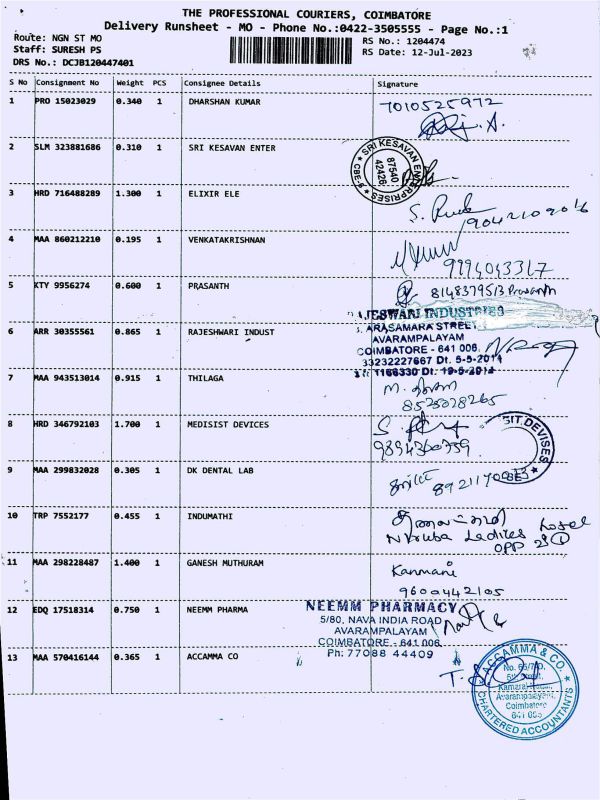 THE PROFESSIONAL COURIERS, COIMBATORE
Delivery Runsheet - MO - Phone No.:0422-3505555 - Page No.:1
Route: NGN ST MO
RS No.: 1204474
Staff: SURESH PS
RS Date: 12-Jul-2023
DRS No.: DCJB120447401
S No Consignment No Weight PCS Consignee Details Signature
1 PRO 15023029 0.340 1 DHARSHAN KUMAR 7010525972
2 SLM 323881686 0.310 1 SRI KESAVAN ENTER
SRI KESAVAN ENTERPRISES
87540
42426
CBE-9
3 HRD 716488289 1.300 1 ELIXIR ELE
9042109016
4 MAA 860212210 0.195 1 VENKATAKRISHNAN
9994043347
5 KTY 9956274 0.600 1 PRASANTH 8148379513 Prasanth
JESWARI INDUSTRIES
ARASAMARA STREET
6 ARR 30355561 0.865 1 RAJESHWARI INDUST
AVARAMPALAYAM
COIMBATORE - 641 006.
33232227667 Dt. 5-5-2014
1166330 Dt. 19-6-2014
7 MAA 943513014 0.915 1 THILAGA
8528028265
8 HRD 346792103 1.700 1 MEDISIST DEVICES
SIT DEVISES
9894360759
9 MAA 299832028 0.305 1 DK DENTAL LAB
10 TRP 7552177 0.455 1 INDUMATHI
Niruba Ladies Hostel
OPP
11 MAA 298228487 1.400 1 GANESH MUTHURAM Kanmani
9600442105
12 EDQ 17518314 0.750 1 NEEMM PHARMA
NEEMM PHARMACY
5/80, NAVA INDIA ROAD
AVARAMPALAYAM
COIMBATORE - 641 006.
Ph: 77088 44409
13 MAA 570416144 0.365 1 ACCAMMA CO
ACCAMMA & CO.
Avarampalayam,
Coimbatore
CHARTERED ACCOUNTANTS